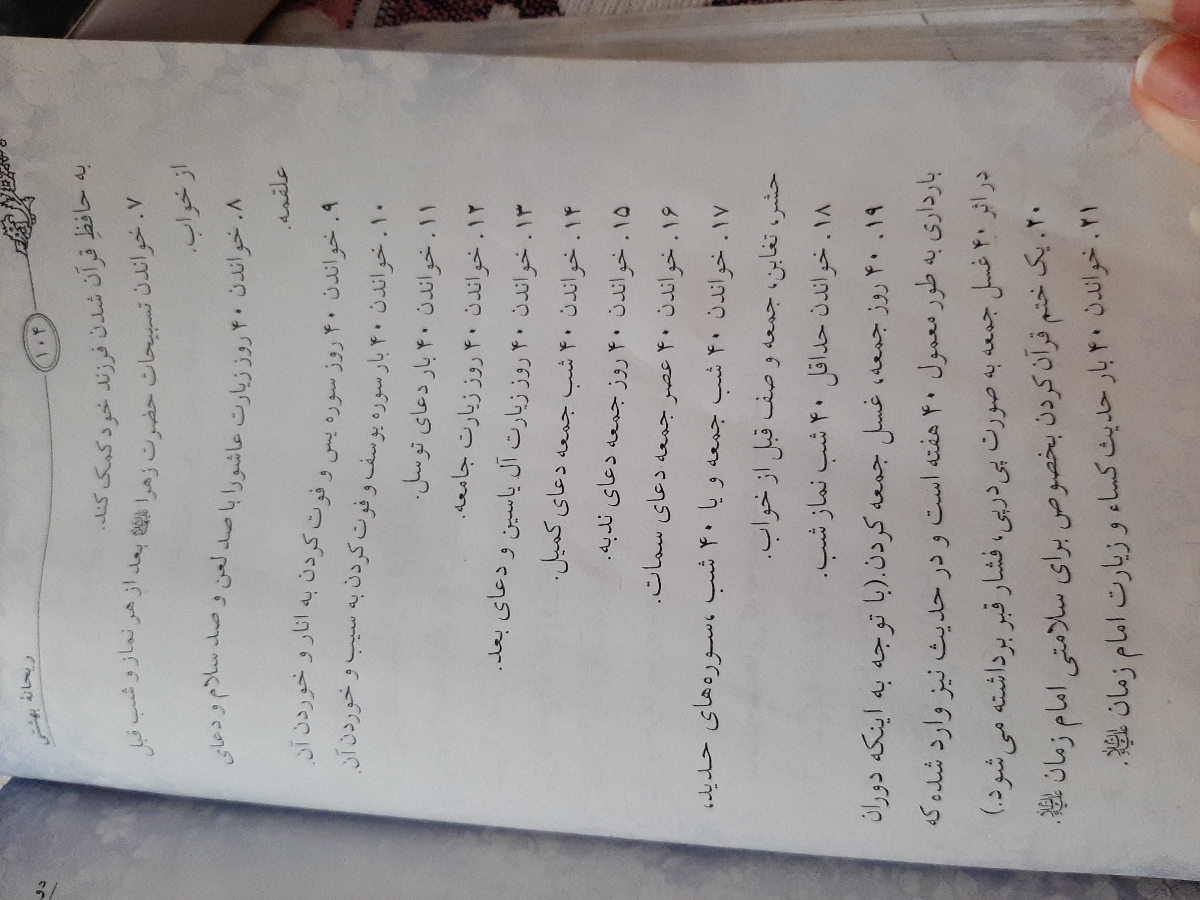 ریحانهٔ بهشتی
۱۰۴
به حافظِ قرآن شدن فرزند خود کمک کند.
۷. خواندن تسبیحات حضرت زهرا بعد از هر نماز و شب قبل
از خواب.
۸. خواندن ۴۰ روز زیارت عاشورا با صد لعن و صد سلام و دعای
علقمه.
۹. خواندن ۴۰ روز سوره یس و فوت کردن به انار و خوردن آن.
۱۰. خواندن ۴۰ بار سوره یوسف و فوت کردن به سیب و خوردن آن.
۱۱. خواندن ۴۰ بار دعای توسل.
۱۲. خواندن ۴۰ روز زیارت جامعه.
۱۳. خواندن ۴۰ روز زیارت آل یاسین و دعای بعد.
۱۴. خواندن ۴۰ شب جمعه دعای کمیل.
۱۵. خواندن ۴۰ روز جمعه دعای ندبه.
۱۶. خواندن ۴۰ عصر جمعه دعای سمات.
۱۷. خواندن ۴۰ شب جمعه و یا ۴۰ شب ،سوره‌های حدید،
حشر، تغابن، جمعه و صف قبل از خواب.
۱۸. خواندن حداقل ۴۰ شب نماز شب.
۱۹. ۴۰ روز جمعه، غسل جمعه کردن.(با توجه به اینکه دوران
بارداری به طور معمول ۴۰ هفته است و در حدیث نیز وارد شده که
در اثر ۴۰ غسل جمعه به صورت پی در پی، فشار قبر برداشته می شود.)
۲۰. یک ختم قرآن کردن بخصوص برای سلامتی امام زمان.
۲۱. خواندن ۴۰ بار حدیث کساء و زیارت امام زمان.
دو